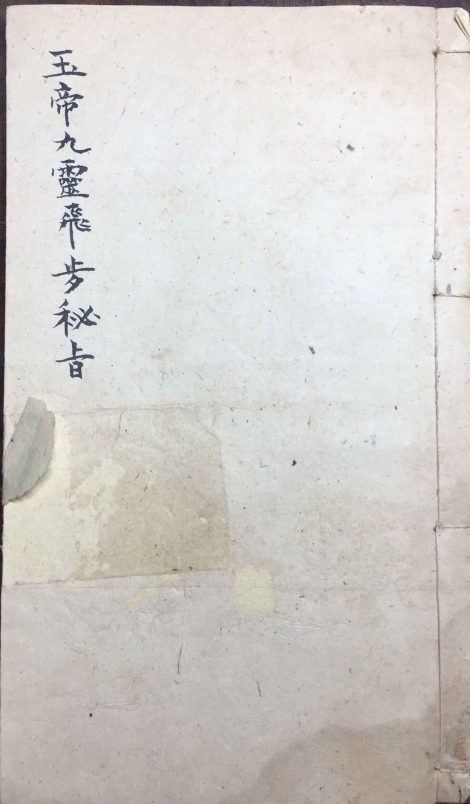 玉帝九靈飛步秘旨